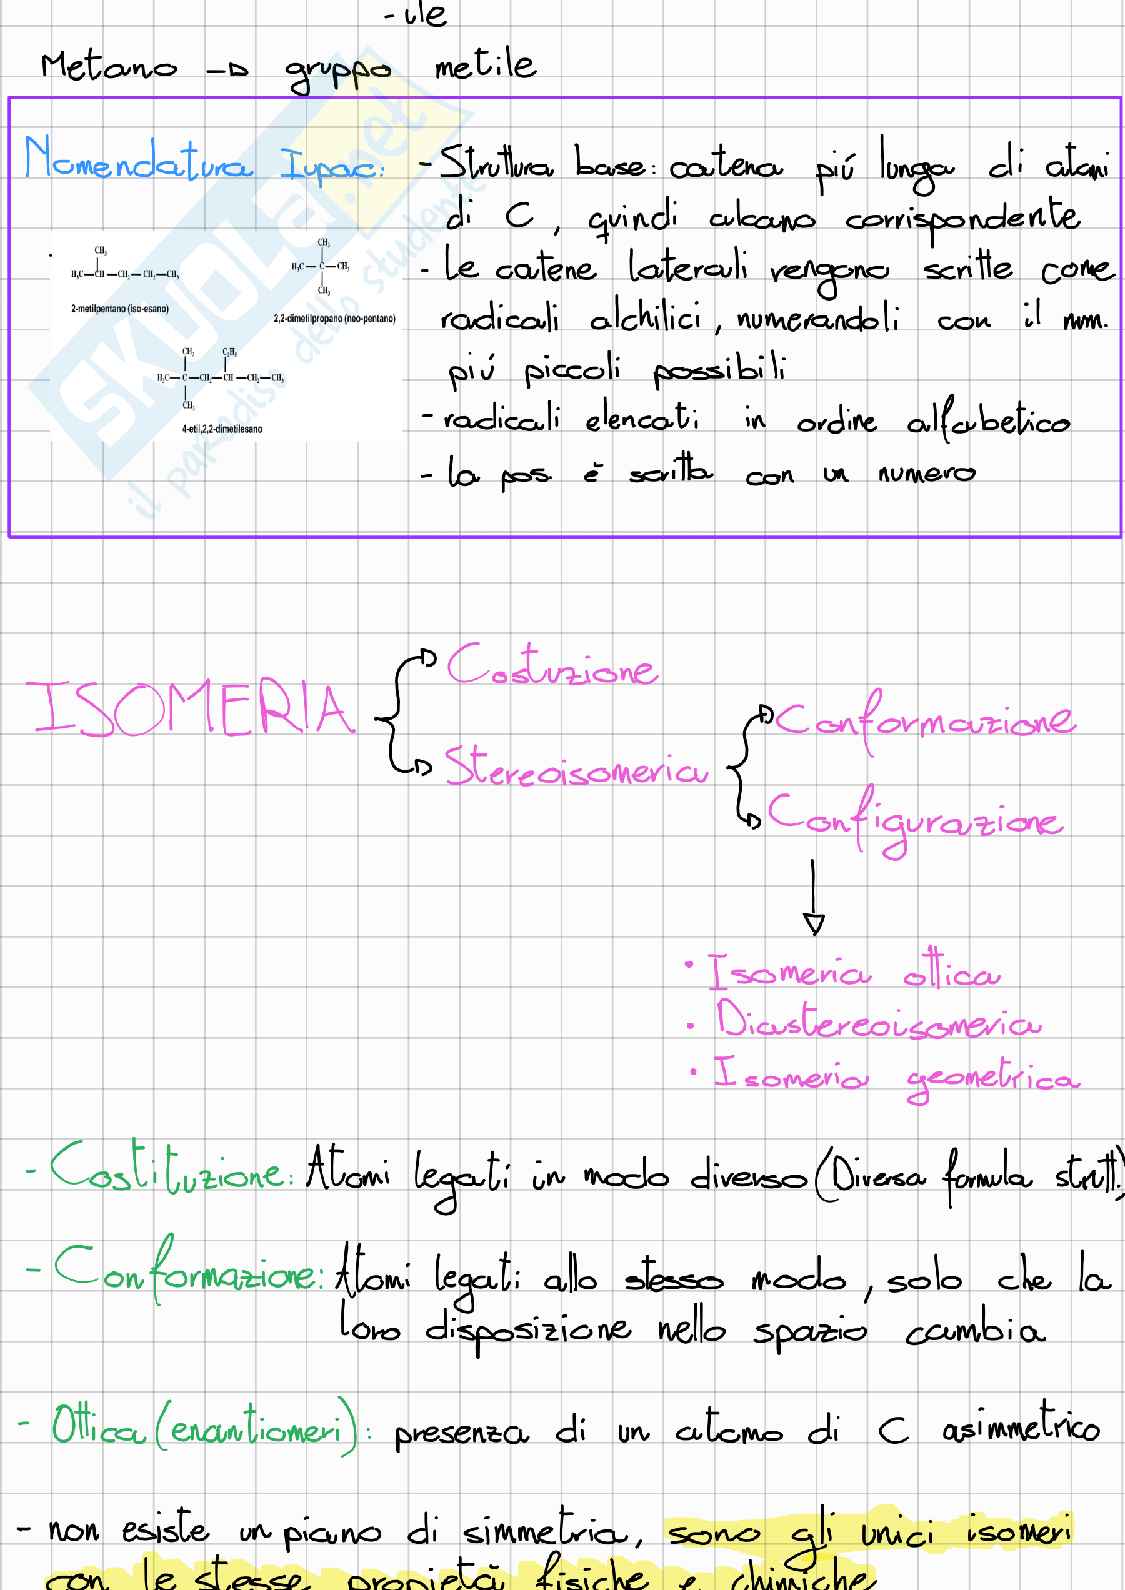 -ile
Metano → gruppo metile
Nomenclatura Iupac: - Struttura base: catena piú lunga di atomi
di C, quindi alcano corrispondente
- Le catene laterali vengono scritte come
radicali alchilici, numerandoli con il num.
piú piccoli possibili
- radicali elencati in ordine alfabetico
- la pos. è scritta con un numero
CH₃
H₃C—CH—CH₂—CH₂—CH₃
2-metilpentano (iso-esano)
CH₃
H₃C—C—CH₃
CH₃
2,2-dimetilpropano (neo-pentano)
CH₃ C₂H₅
H₃C—C—CH₂—CH—CH₂—CH₃
CH₃
4-etil,2,2-dimetilesano
SKUOLA.net
il paradiso dello studente
ISOMERIA
Costuzione
Stereoisomeria
Conformazione
Configurazione
• Isomeria ottica
• Diastereoisomeria
• Isomeria geometrica
- Costituzione: Atomi legati in modo diverso (Diversa formula strutt.)
- Conformazione: Atomi legati allo stesso modo, solo che la
loro disposizione nello spazio cambia
- Ottica (enantiomeri): presenza di un atomo di C asimmetrico
- non esiste un piano di simmetria, sono gli unici isomeri
con le stesse proprietà fisiche e chimiche